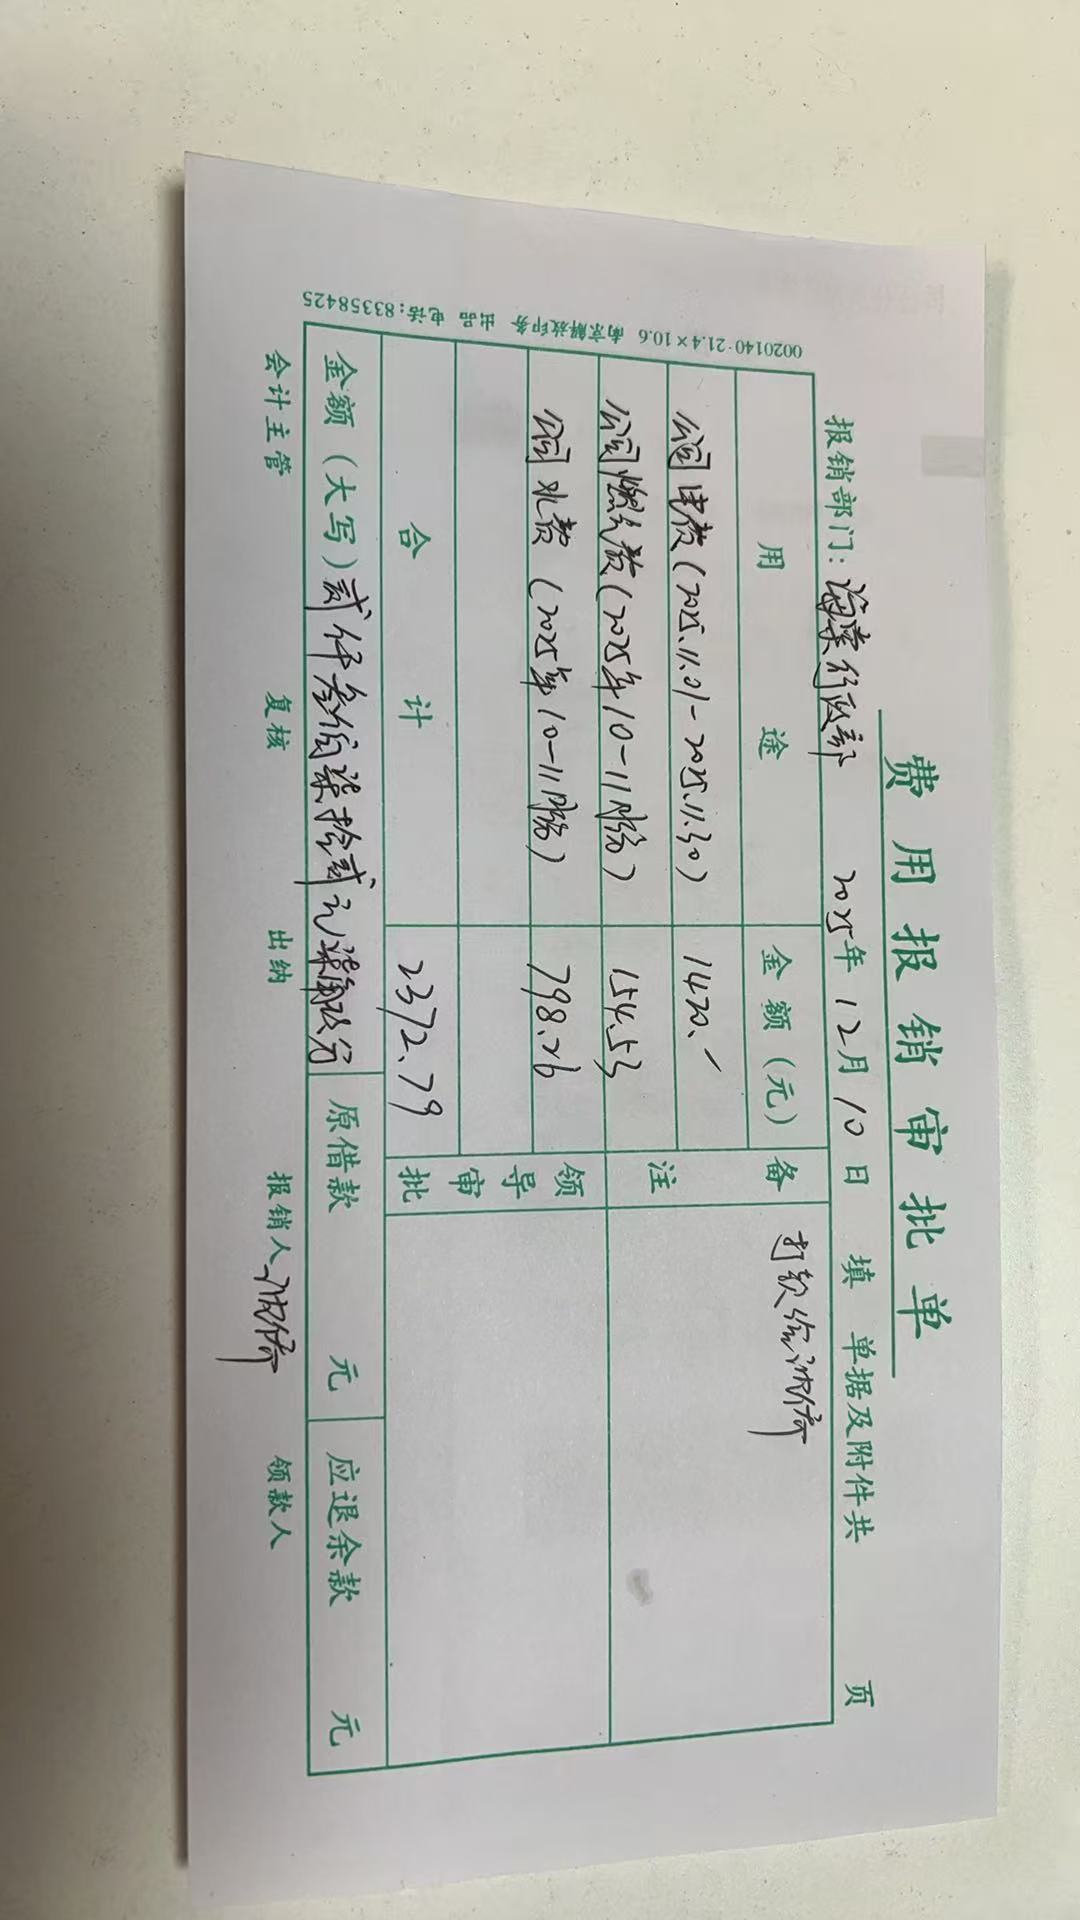 费用报销审批单
报销部门：海棠行政部 2025年12月10日填 单据及附件共 页
用途 金额（元） 备注 打款给
公司电费（2025.11.01-2025.11.30） 1420.-
公司燃气费（2025年10-11月份） 154.53
公司水费（2025年10-11月份） 798.26 领导审批
合计 2372.79
金额（大写）贰仟叁佰柒拾贰元柒角玖分 原借款 元 应退余款 元
会计主管 复核 出纳 报销人 领款人
0020140·21.4×10.6 南京解放印务 出品 电话：83358425